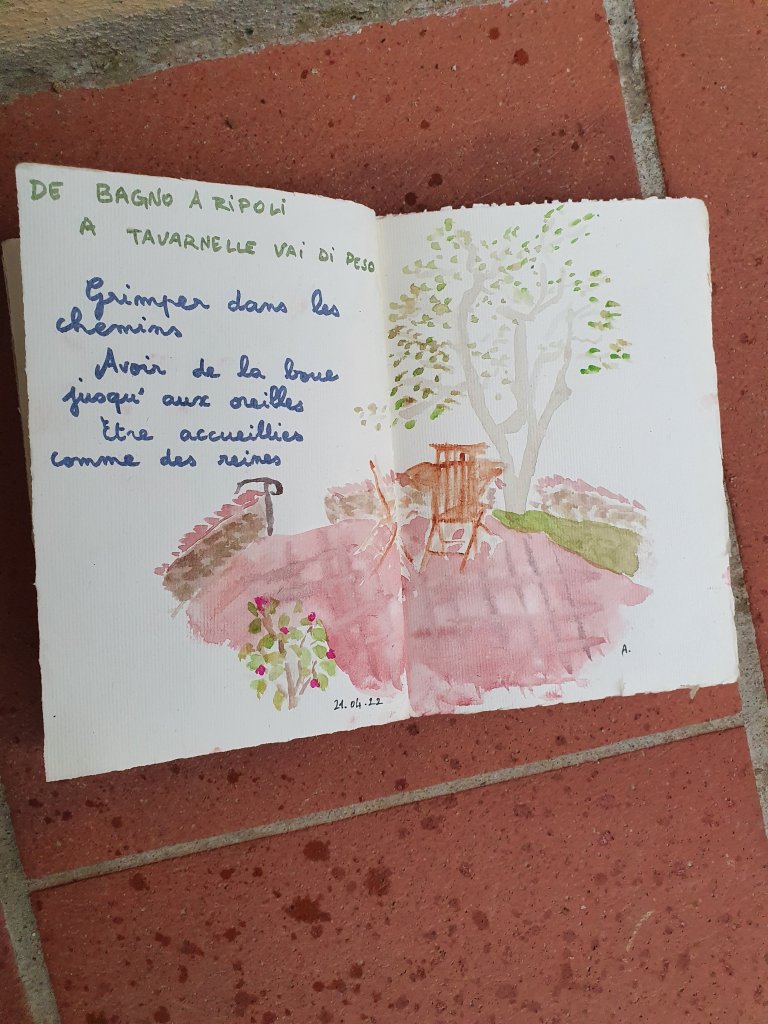 DE BAGNO A RIPOLI
A TAVARNELLE VAI DI PESO
Grimper dans les
chemins
Avoir de la boue
jusqu'aux oreilles
Etre accueillies
comme des reines
21.04.22
A.